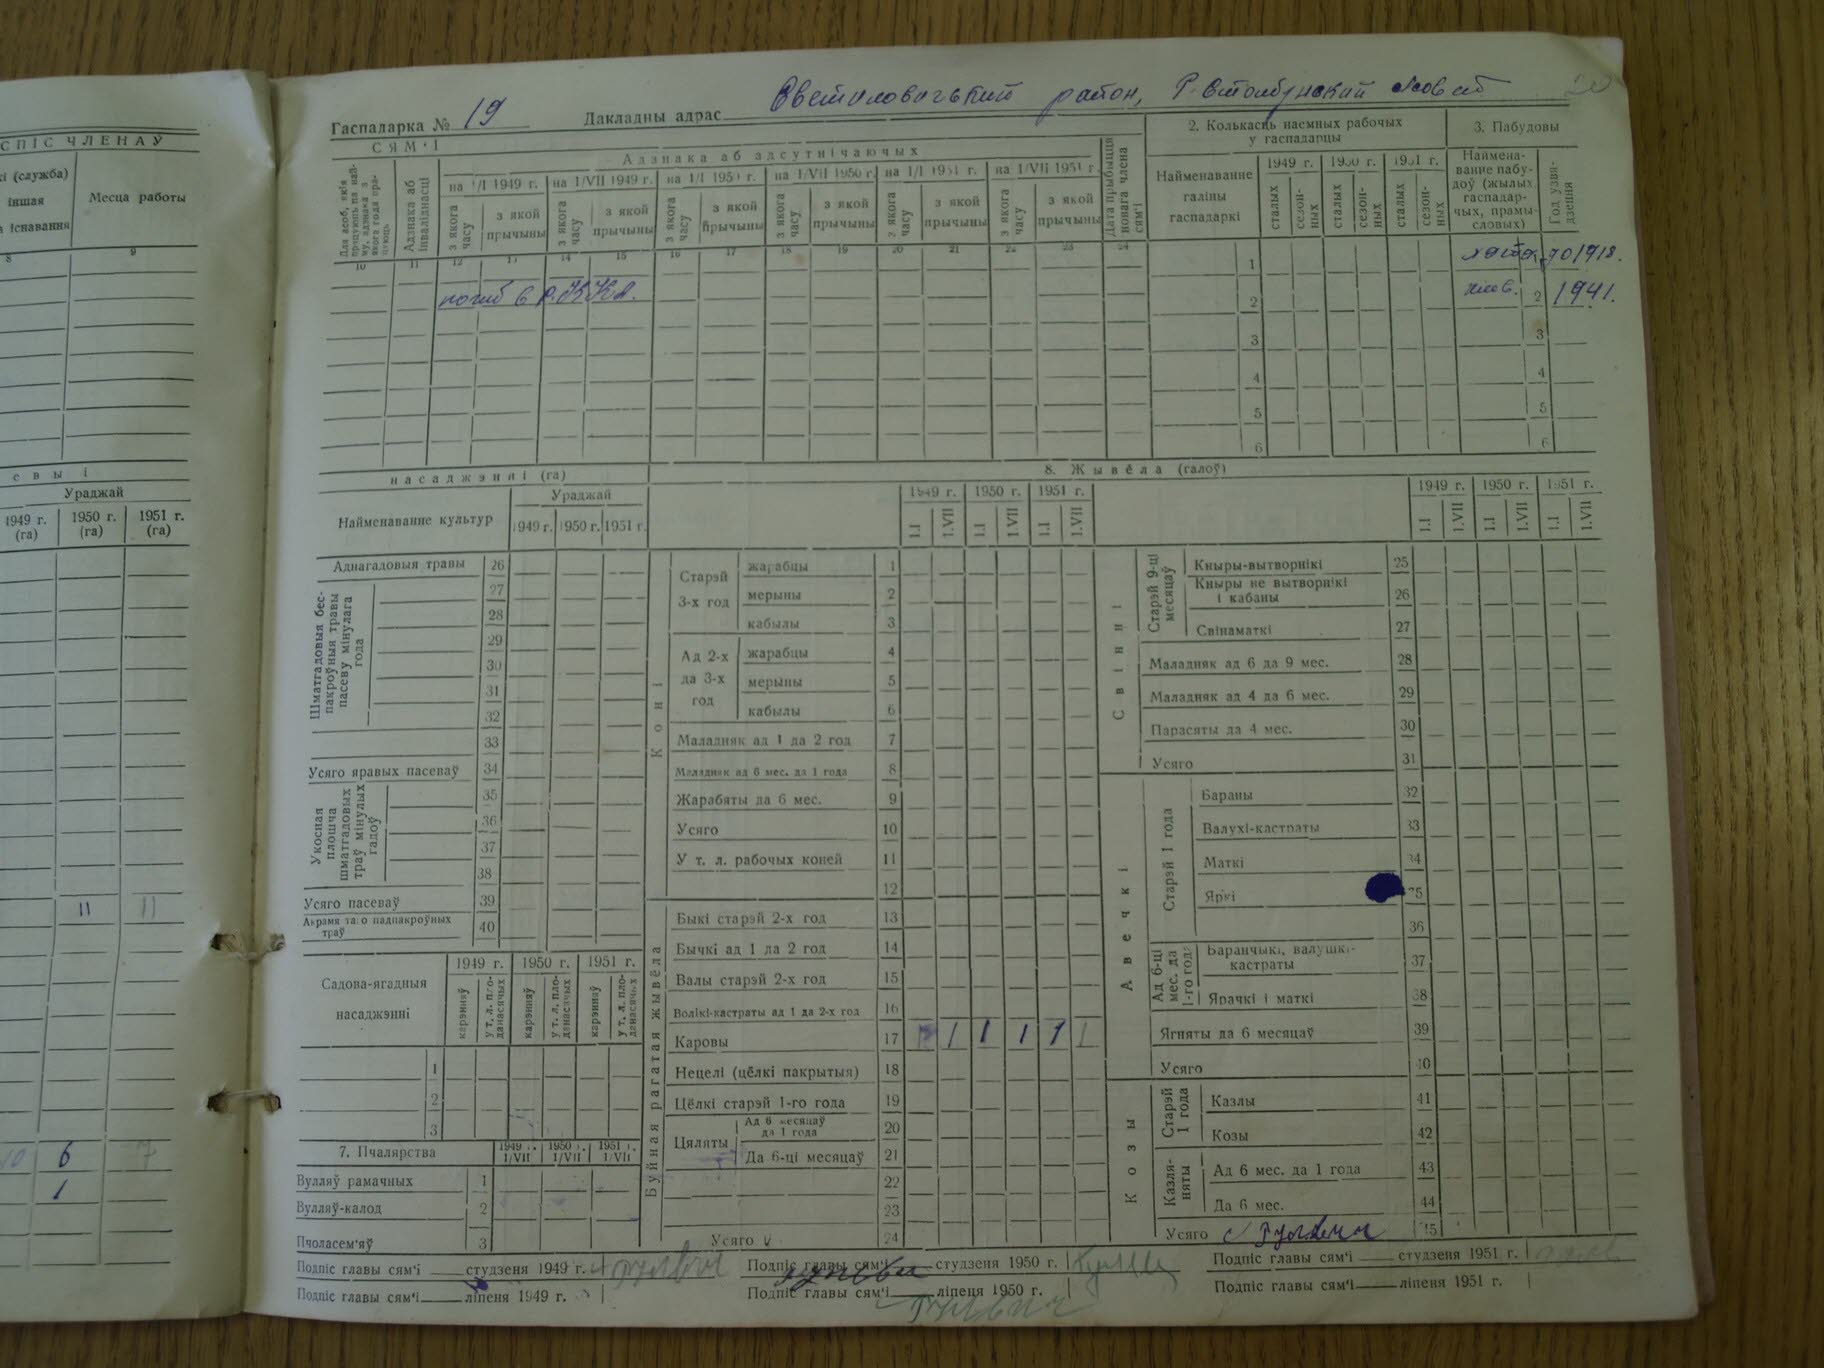 СПІС ЧЛЕНАЎ
кі (служба)
іншая
а існавання
Месца работы
8 9
севы і
Ураджай
1949 г. (га) 1950 г. (га) 1951 г. (га)
11 11
10 6 7
1
Гаспадарка № 19 Дакладны адрас Светиловичский район, Р-Столбунский совет 20
СЯМ'І
Адзнака аб адсутнічаючых
Адзнака аб інваліднасці
на 1/I 1949 г. на 1/VII 1949 г. на 1/I 1950 г. на 1/VII 1950 г. на 1/I 1951 г. на 1/VII 1951 г.
з якога часу з якой прычыны з якога часу з якой прычыны з якога часу з якой прычыны з якога часу з якой прычыны з якога часу з якой прычыны з якога часу з якой прычыны
Дата прыбыцця новага члена сям'і
10 11 12 13 14 15 16 17 18 19 20 21 22 23 24
погиб в Р.К.К.А.
2. Колькасць наемных рабочых у гаспадарцы
Найменаванне галіны гаспадаркі
1949 г. 1950 г. 1951 г.
сталых сезонных сталых сезонных сталых сезонных
1
2
3
4
5
6
3. Пабудовы
Найменаванне пабудоў (жылых, гаспадарчых, прамысловых)
Год узвядзення
хата до 1918.
хлев. 2 1941.
3
4
5
6
насаджэнні (га)
Найменаванне культур
Ураджай
1949 г. 1950 г. 1951 г.
Аднагадовыя травы 26
Шматгадовыя беспакроўныя травы пасеву мінулага года
27
28
29
30
31
32
33
Усяго яравых пасеваў 34
Укосная плошча шматгадовых траў мінулых гадоў
35
36
37
38
Усяго пасеваў 39
Акрамя таго падпакроўных траў 40
Садова-ягадныя насаджэнні
1949 г. 1950 г. 1951 г.
карэнняў у т. л. пладанасячых карэнняў у т. л. пладанасячых карэнняў у т. л. пладанасячых
1
2
3
7. Пчалярства
1949 г. 1/VII 1950 г. 1/VII 1951 г. 1/VII
Вулляў рамачных 1
Вулляў-калод 2
Пчоласем'яў 3
8. Жывёла (галоў)
1949 г. 1950 г. 1951 г.
1.I 1.VII 1.I 1.VII 1.I 1.VII
Коні
Старэй 3-х год
жарабцы 1
мерыны 2
кабылы 3
Ад 2-х да 3-х год
жарабцы 4
мерыны 5
кабылы 6
Маладняк ад 1 да 2 год 7
Маладняк ад 6 мес. да 1 года 8
Жарабяты да 6 мес. 9
Усяго 10
У т. л. рабочых коней 11
12
Буйная рагатая жывёла
Быкі старэй 2-х год 13
Бычкі ад 1 да 2 год 14
Валы старэй 2-х год 15
Волікі-кастраты ад 1 да 2-х год 16
Каровы 17 1 1 1 1 1
Нецелі (цёлкі пакрытыя) 18
Цёлкі старэй 1-го года 19
Цяляты
Ад 6 месяцаў да 1 года 20
Да 6-ці месяцаў 21
22
23
Усяго 24
1949 г. 1950 г. 1951 г.
1.I 1.VII 1.I 1.VII 1.I 1.VII
Свінні
Старэй 9-ці месяцаў
Кныры-вытворнікі 25
Кныры не вытворнікі і кабаны 26
Свінаматкі 27
Маладняк ад 6 да 9 мес. 28
Маладняк ад 4 да 6 мес. 29
Парасяты да 4 мес. 30
Усяго 31
Авечкі
Старэй 1 года
Бараны 32
Валухі-кастраты 33
Маткі 34
Яркі 35
36
Ад 6-ці мес. да 1-го года
Баранчыкі, валушкі-кастраты 37
Ярачкі і маткі 38
Ягняты да 6 месяцаў 39
Усяго 40
Козы
Старэй 1 года
Казлы 41
Козы 42
Казляняты
Ад 6 мес. да 1 года 43
Да 6 мес. 44
Усяго 45
Подпіс главы сям'і студзеня 1949 г.
Подпіс главы сям'і студзеня 1950 г.
Подпіс главы сям'і студзеня 1951 г.
Подпіс главы сям'і ліпеня 1949 г.
Подпіс главы сям'і ліпеня 1950 г.
Подпіс главы сям'і ліпеня 1951 г.